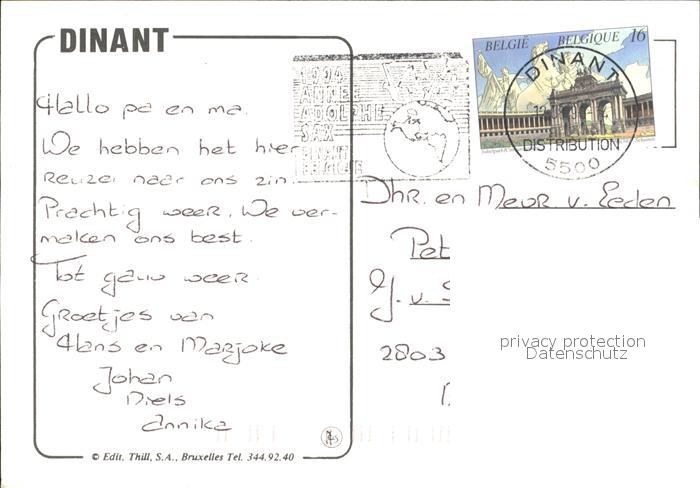 DINANT
Hallo pa en ma.
We hebben het hier
reuzei naar ons zin.
Prachtig weer. We ver-
maken ons best.
Tot gauw weer.
Groetjes van
Hans en Marjoke
Johan
Niels
Annika
© Edit. Thill, S.A., Bruxelles Tel. 344.92.40
1994
ANNEE
ADOLPHE
SAX
DINANT
BELGIQUE
BELGIË BELGIQUE 16
DINANT
DISTRIBUTION
5500
Dhr. en Mevr v. Eeden
Pet
J. v. S
2803
privacy protection
Datenschutz